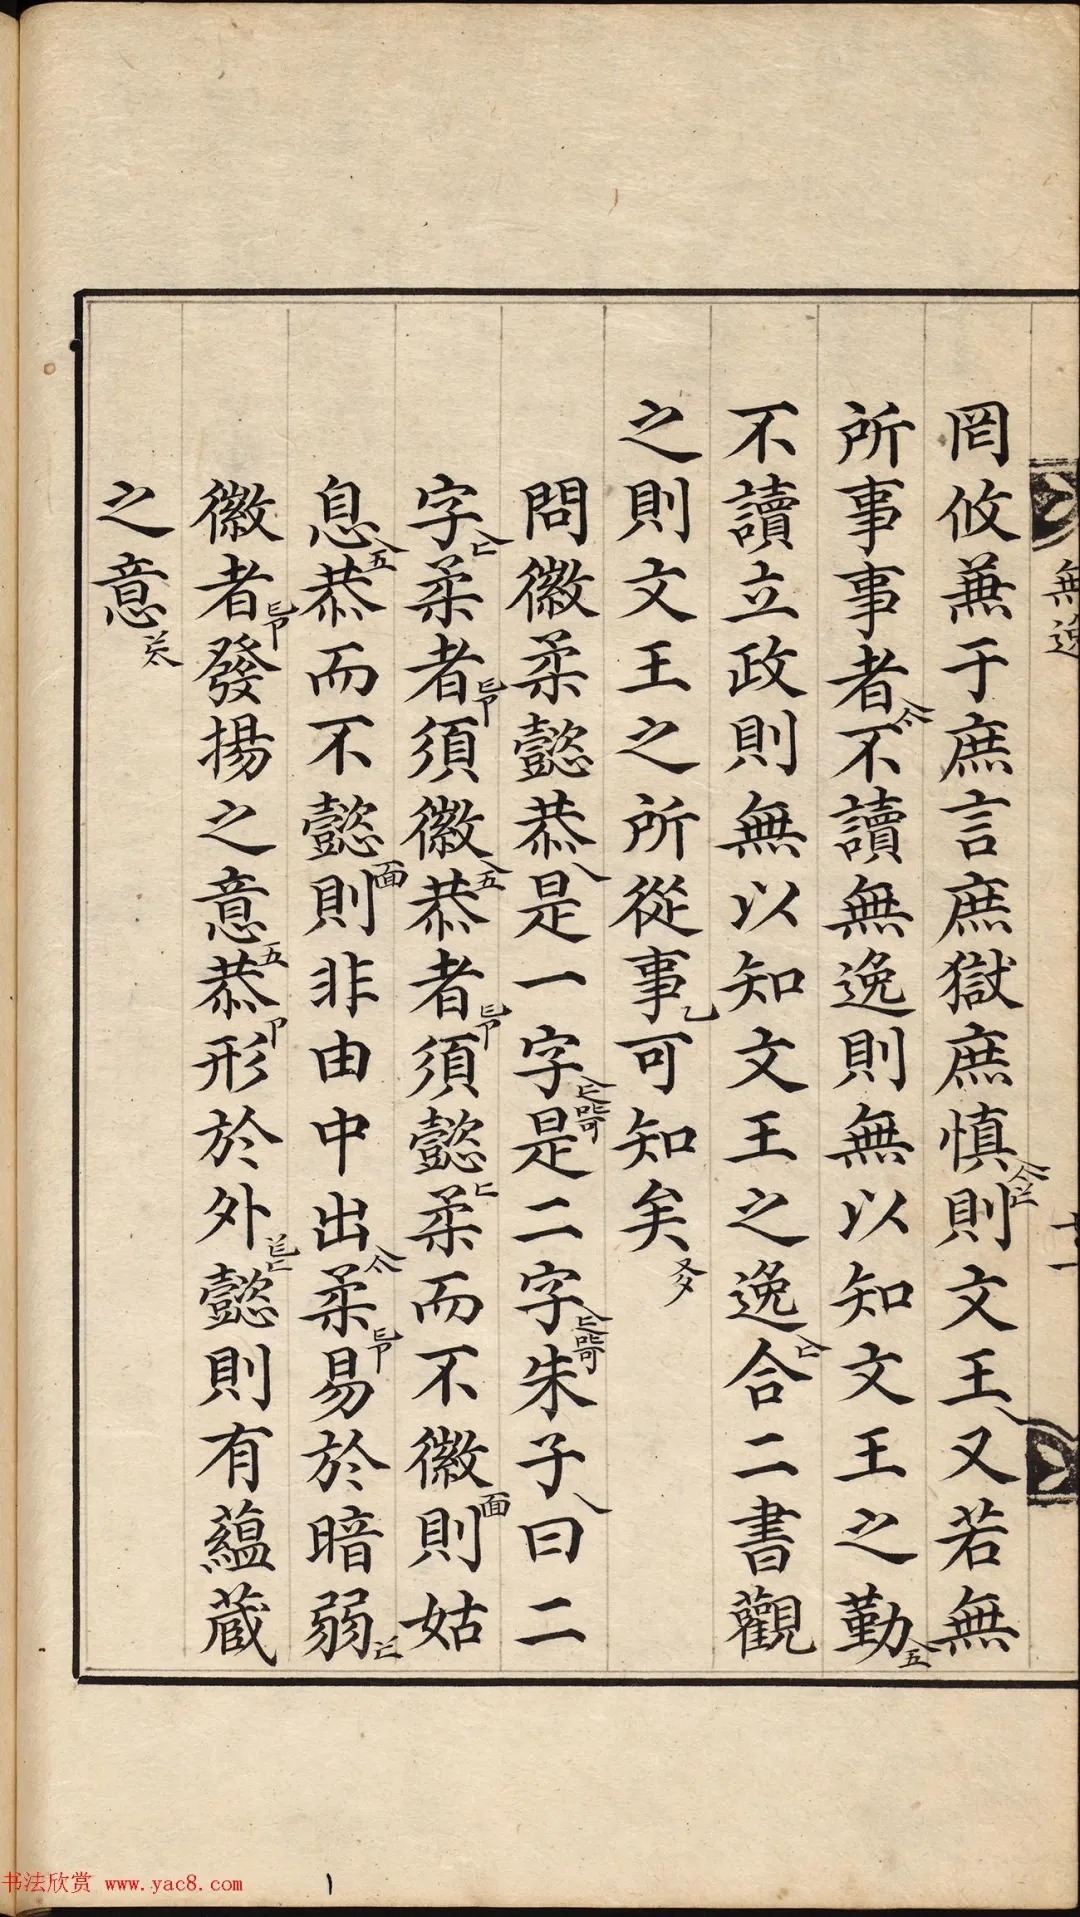 無逸
罔攸兼于庶言庶獄庶慎則文王又若無
所事事者不讀無逸則無以知文王之勤
不讀立政則無以知文王之逸合二書觀
之則文王之所從事可知矣
問徽柔懿恭是一字是二字朱子曰二
字柔者須徽恭者須懿柔而不徽則姑
息恭而不懿則非由中出柔易於暗弱
徽者發揚之意恭形於外懿則有蘊蔵
之意
书法欣赏 www.yac8.com